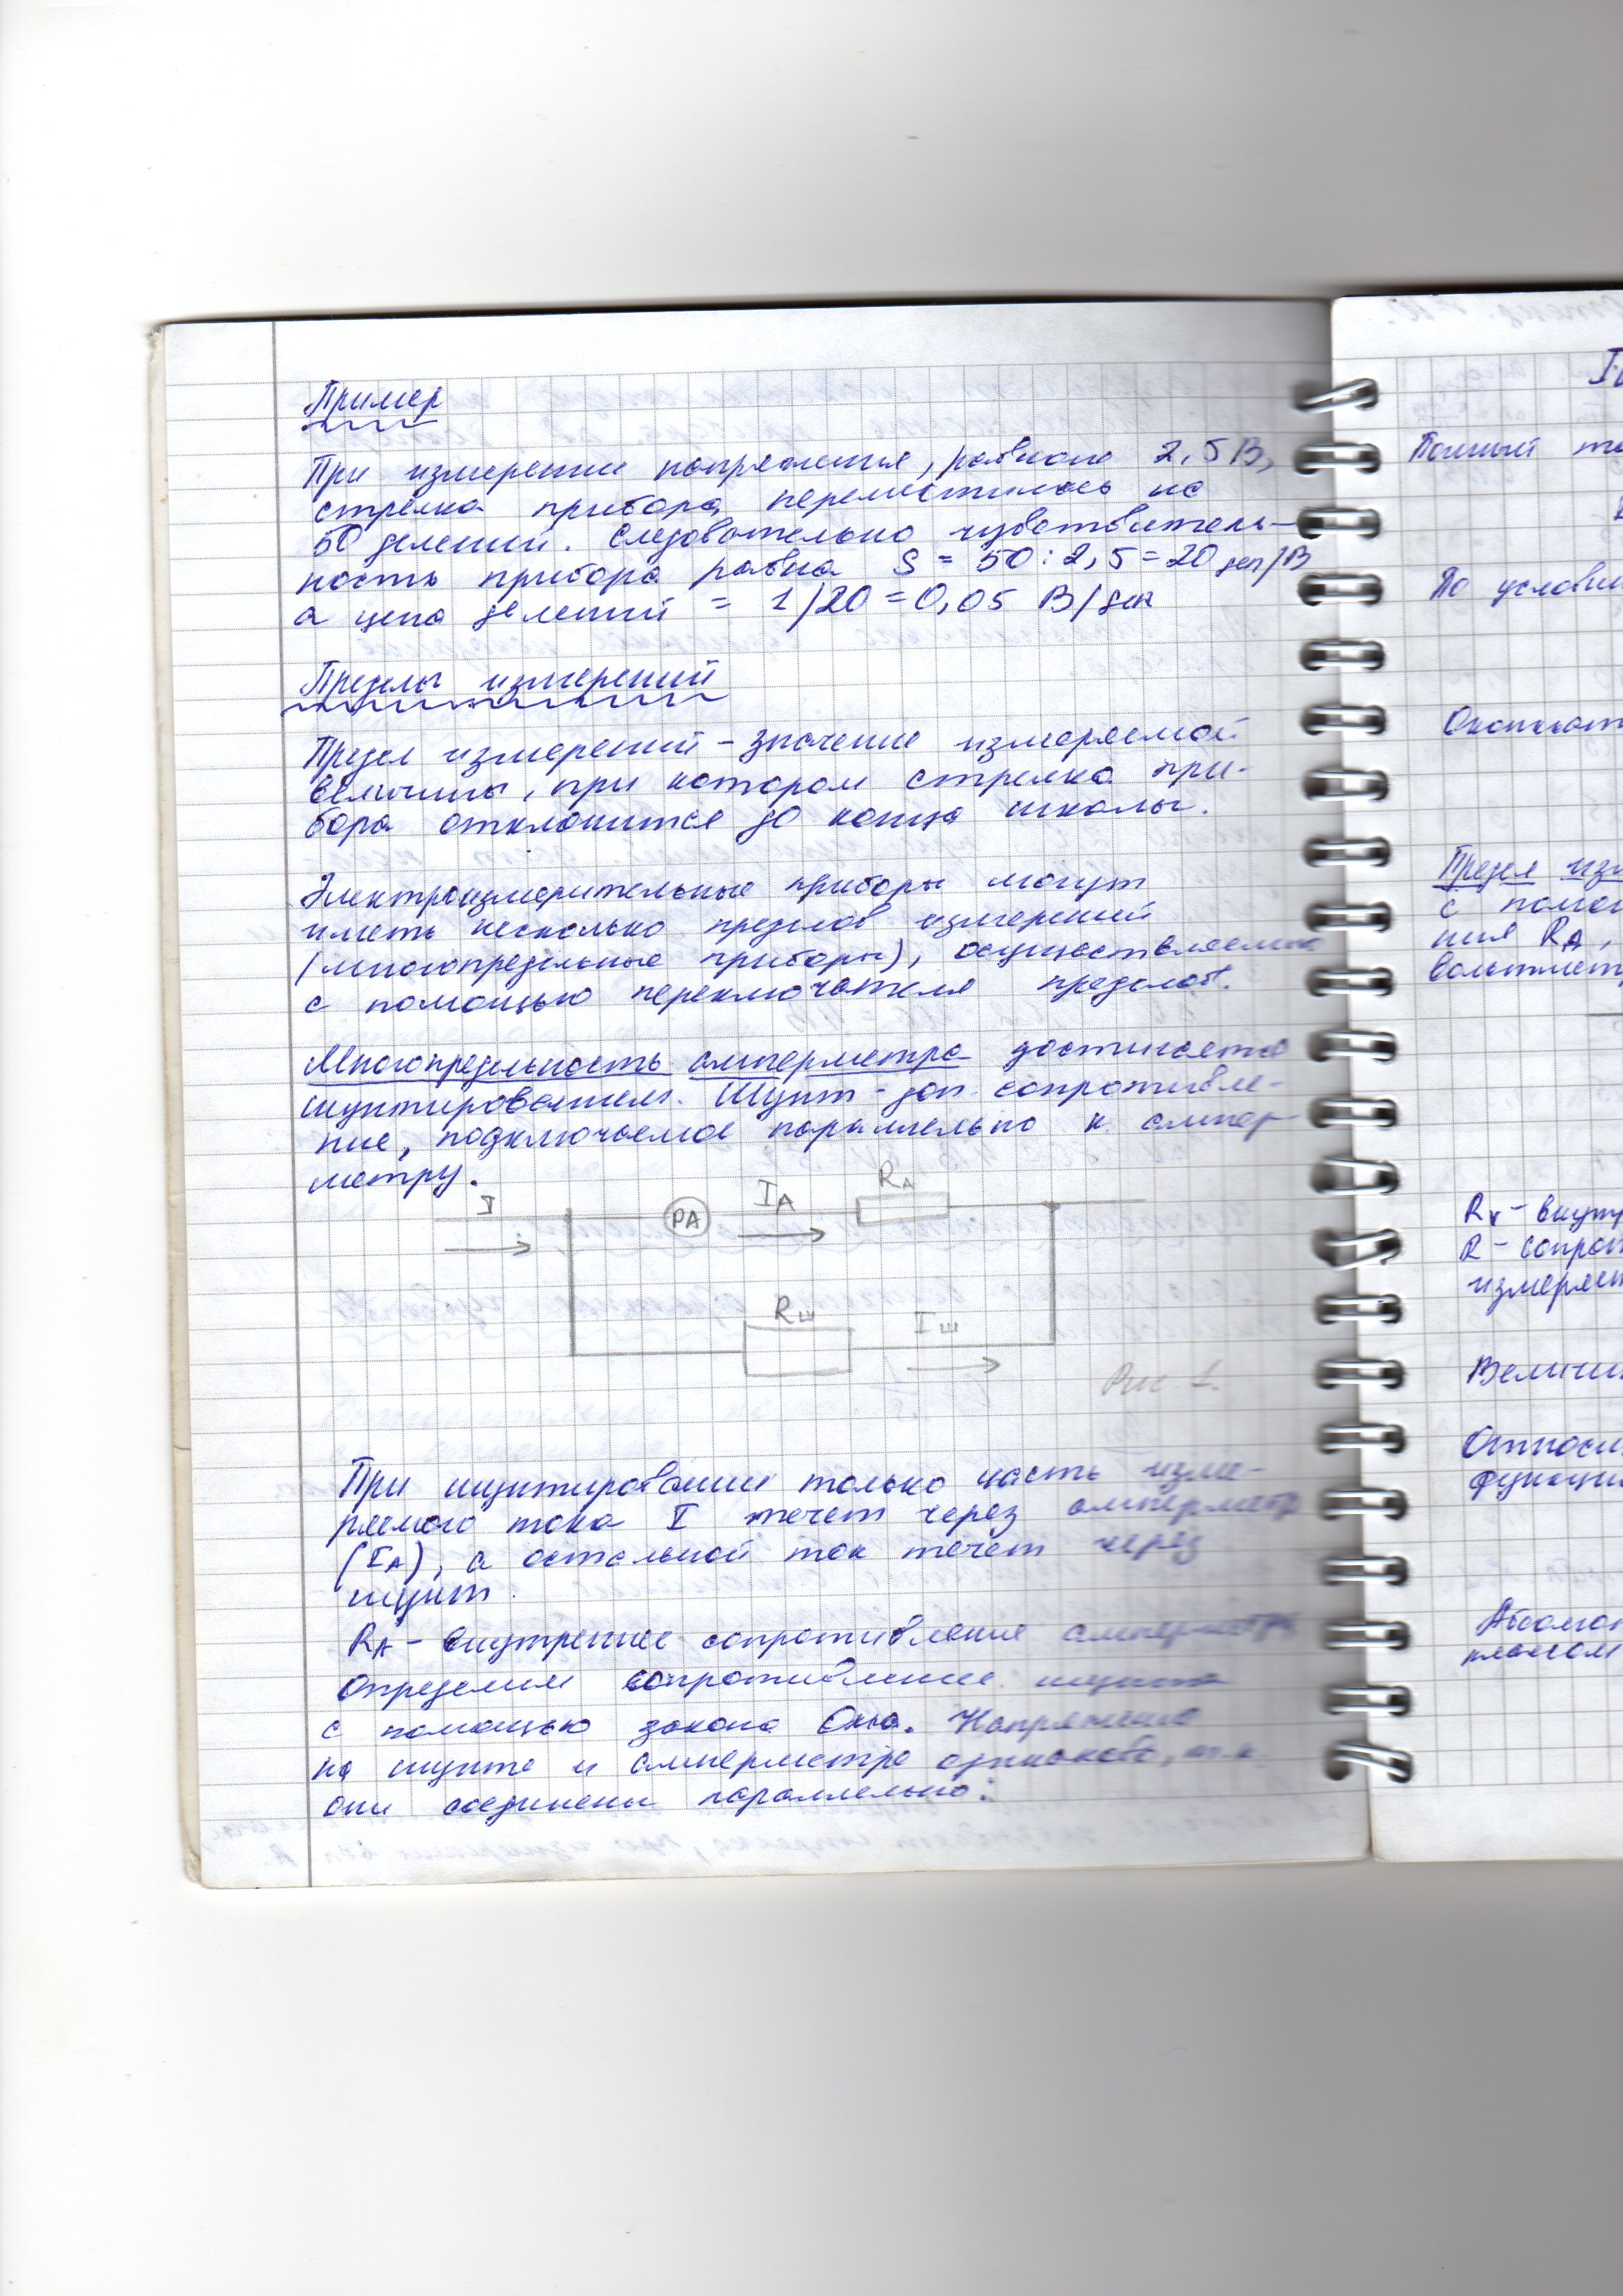 Пример
При измерении напряжения, равного 2,5 В,
стрелка прибора переместилась на
50 делений. Следовательно чувствитель-
ность прибора равна S = 50 : 2,5 = 20 дел/В
а цена делений = 1/20 = 0,05 В/дел
Пределы измерений
Предел измерений – значение измеряемой
величины, при котором стрелка при-
бора отклонится до конца шкалы.
Электроизмерительные приборы могут
иметь несколько пределов измерений
(многопредельные приборы), осуществляемых
с помощью переключателя пределов.
Многопредельность амперметра достигается
шунтированием. Шунт – доп. сопротивле-
ние, подключаемое параллельно к ампер-
метру.
I PA IА RА
Rш Iш
Рис. 1.
При шунтировании только часть изме-
ряемого тока I течет через амперметр
(IА), а остальной ток течет через
шунт.
RА – внутреннее сопротивление амперметра
Определим сопротивление шунта
с помощью закона Ома. Напряжение
на шунте и амперметре одинаково, т.к
они соединены параллельно:
Полный
По услови
Предел
с помо
ния RА,
вольтмет
Rv – внут
R – сопро
измеряе
Величи
Относи
функци
Абсолю